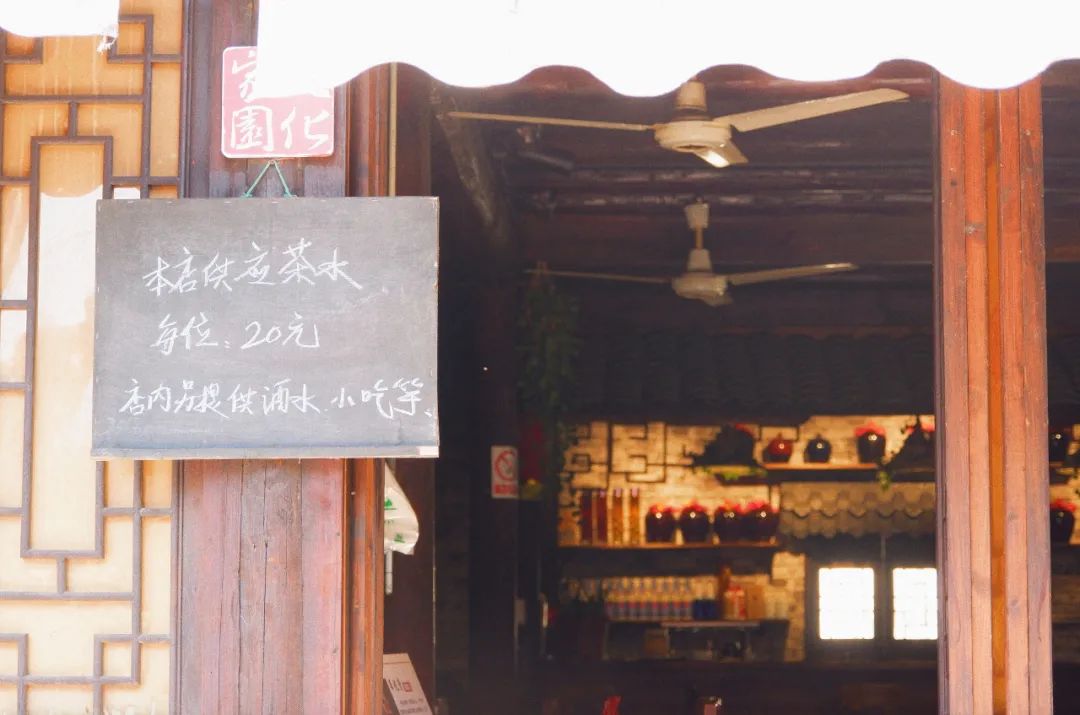 化
家園
本店供应茶水
每位：20元
店内另提供酒水.小吃等、